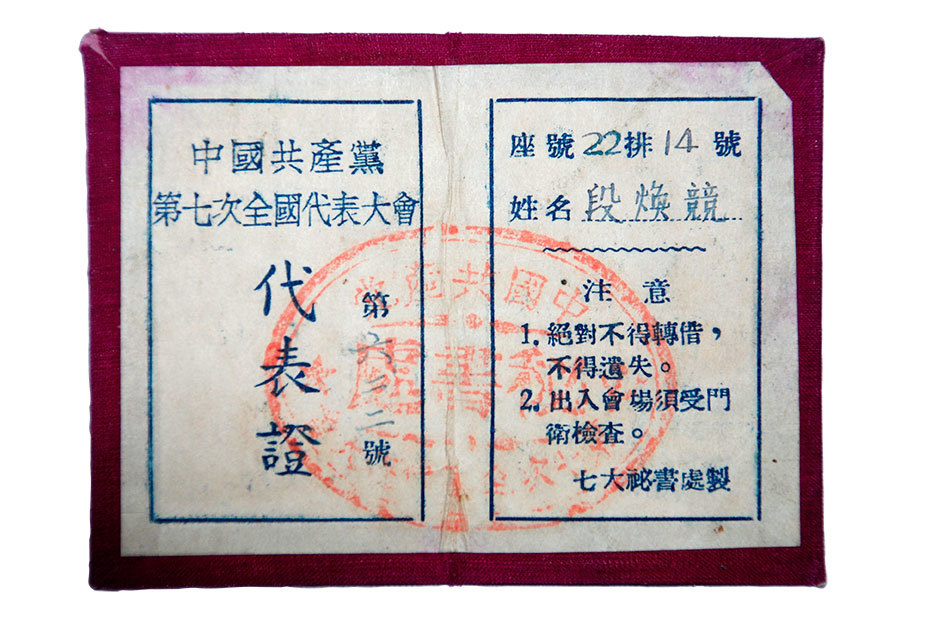 中國共產黨
第七次全國代表大會
代表證
第六二二號
座號22排14號
姓名段焕競
注意
1.絕對不得轉借，
不得遺失。
2.出入會場須受門
衛檢查。
七大祕書處製
中國共產黨
祕書處